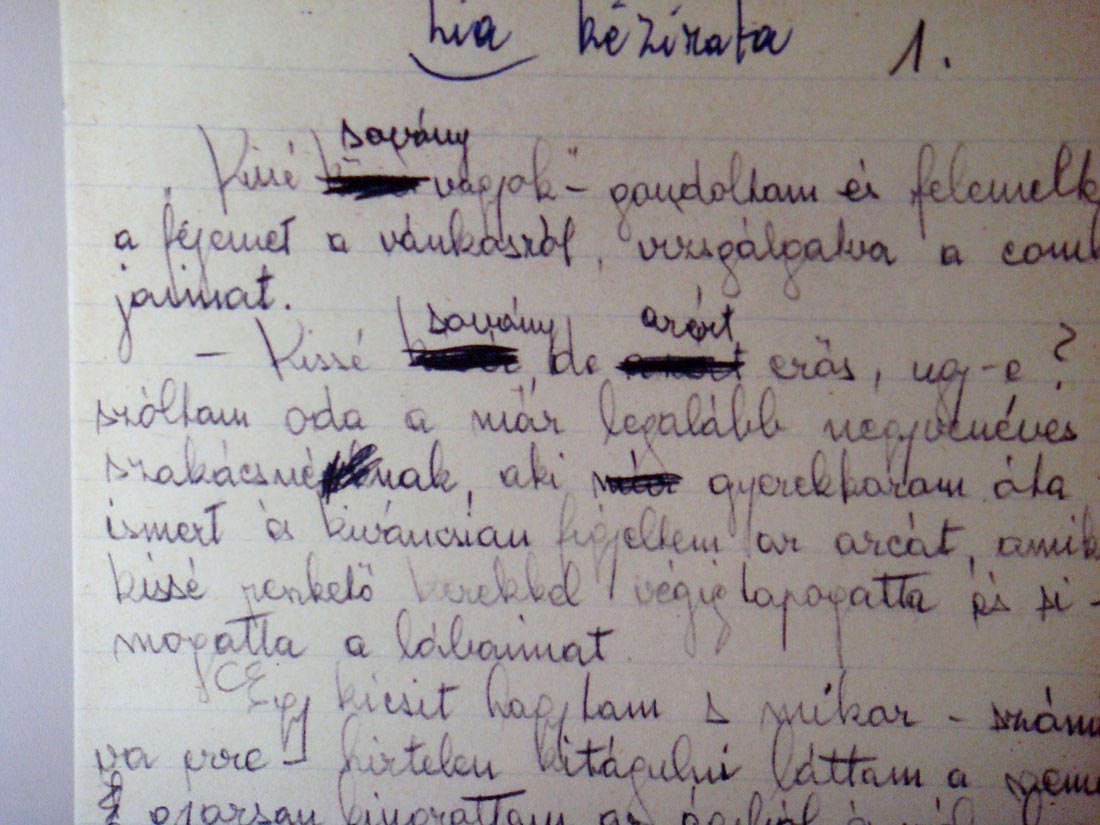 Lia kézirata 1.
sovány
Kissé vagyok" - gondoltam és felemelk
a fejemet a vánkosról, vizsgálgatva a comb
jaimat.
sovány azért
- Kissé de erős, ugy-e?
szóltam oda a már legalább negyvenéves
szakácsnénak, aki már gyerekkorom óta
ismert és kiváncsian figyeltem az arcát, amik
kissé remkető kezekkel végigtapogatta és si-
mogatta a lábaimat.
Egy kicsit hagytam s mikor - számi
va erre - hirtelen kitágulni láttam a szeme
gyorsan kiugrottam az ágyból